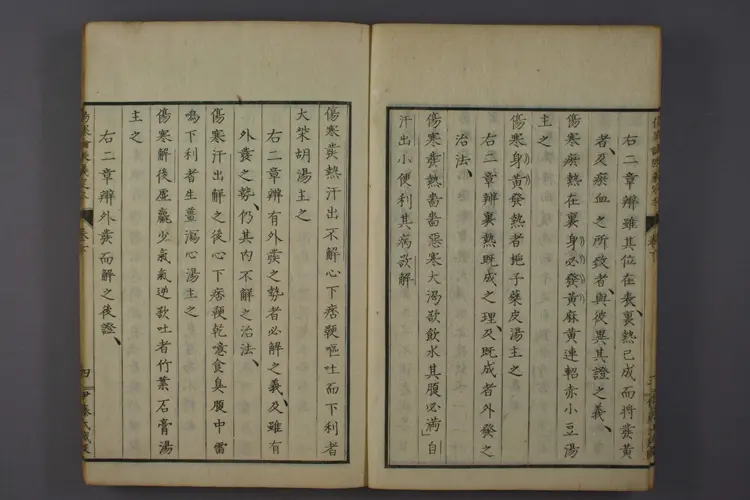 右二章辨雖其位在表、裏熱已成而將發黃
者、及瘀血之所致者、與彼異其證之義、
傷寒瘀熱在裏身必發黃麻黃連軺赤小豆湯
主之
傷寒身黃發熱者梔子蘗皮湯主之
右二章辨裏熱既成之理、又既成者外發之
治法、
傷寒發熱嗇嗇惡寒大渴欲飲水其腹必滿」自
汗出小便利其病欲解
傷寒發熱汗出不解心下痞鞕嘔吐而下利者
大柴胡湯主之
右二章辨有外發之勢者必解之義、及雖有
外發之勢、仍其內不解之治法、
傷寒汗出解之後心下痞鞕乾噫食臭腹中雷
鳴下利者生薑瀉心湯主之
傷寒解後虛羸少氣氣逆欲吐者竹葉石膏湯
主之
右二章辨外發而解之後證、